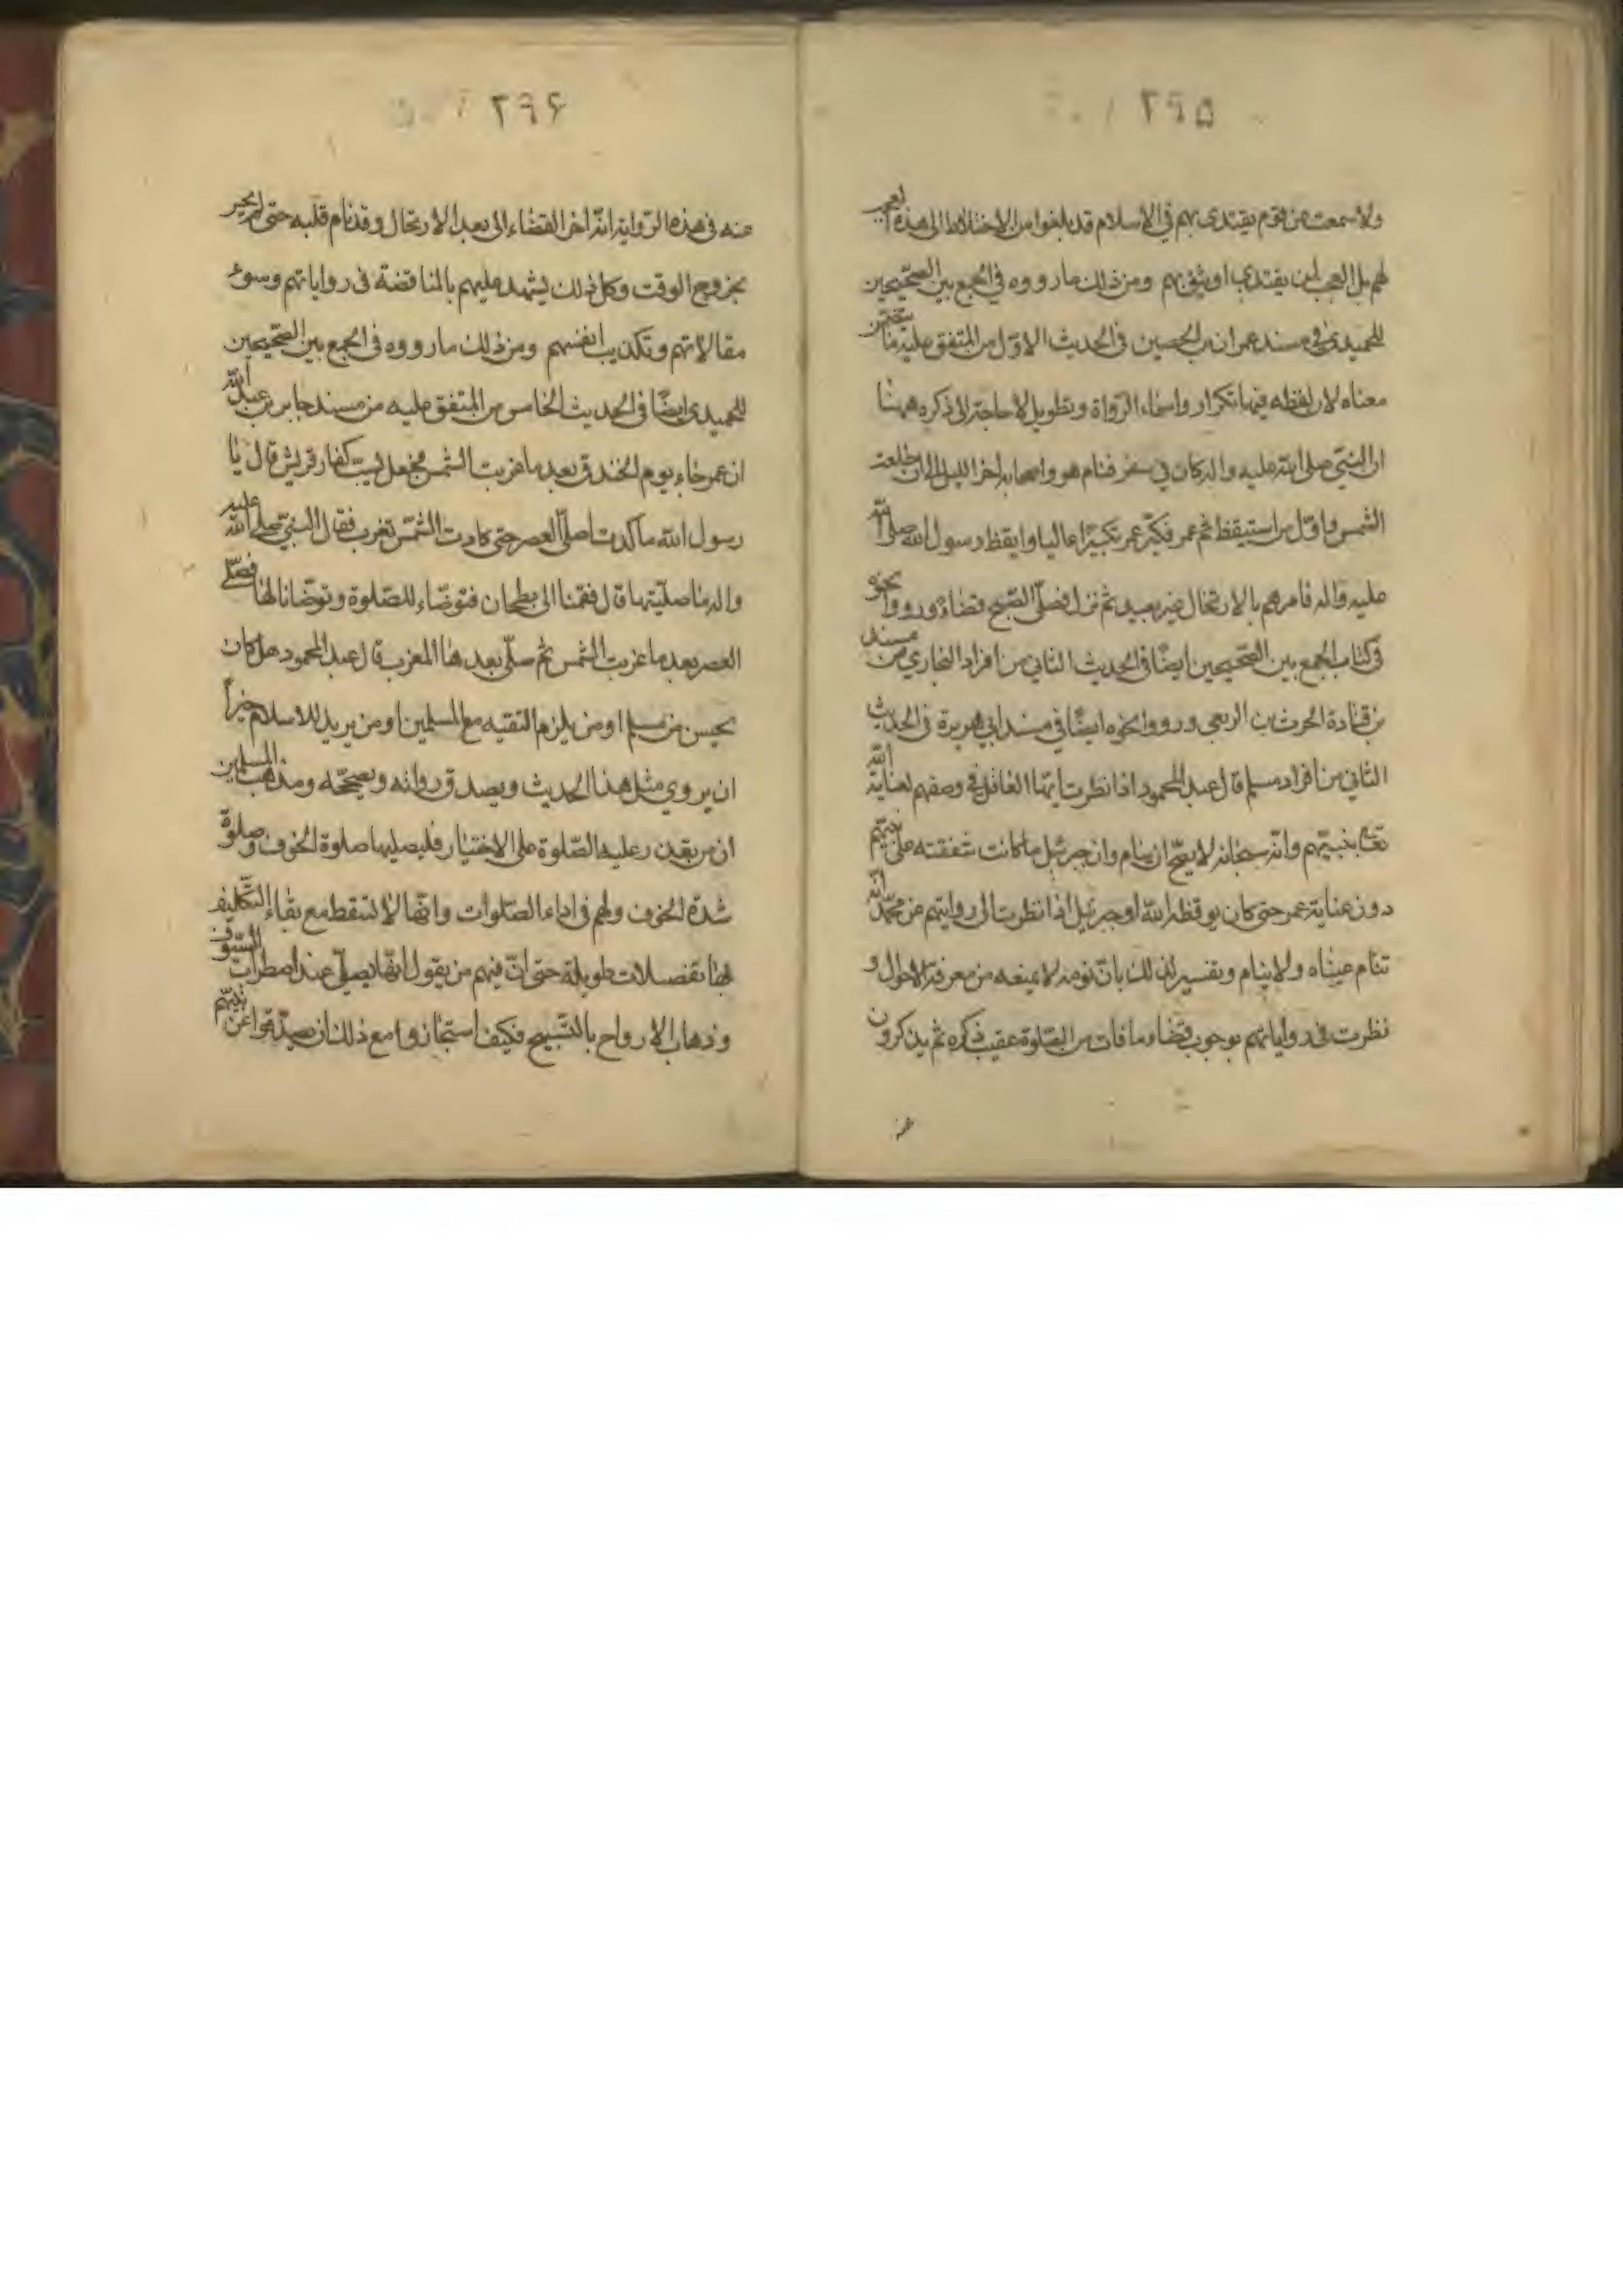 ۲۹۵
ولا سمعت عن قوم يقتدى بهم في الاسلام قد بلغوا من الاختلاط الى هذه
لهم بل العجب لمن يقتدي او يثق بهم ومن ذلك ما رووه في الجمع بين الصحيحين
للحميدي في مسند عمران بن الحصين في الحديث الاوّل من المتفق عليه ما يتضمن
معناه لان لفظه فيها تكرار واسماء الرّواة وتطويل لا حاجة الى ذكره ههنا
ان النبيّ صلى الله عليه واله كان في سفر فنام هو واصحابه اخر الليل الى ان طلعت
الشمس واوّل من استيقظ ثم عمر فكبّر عمر تكبيرًا عاليا وايقظ رسول الله صلى الله
عليه واله فامرهم بالارتحال غير بعيد ثم نزل فصلّى الصّبح قضاءً ورووا نحوه
في كتاب الجمع بين الصّحيحين ايضًا في الحديث الثاني من افراد البخاري من مسند
بن قتادة الحرث بن الربعي ورووا نحوه ايضًا في مسند ابي هريرة في الحديث
الثاني من افراد مسلم قال عبد المحمود اذا نظرت ايّها العاقل في وصفهم لعناية الله
تعالى بنبيّهم وانّه سبحانه لا يصحّ ان ينام وان جبرئيل ما كانت شفقته على نبيّهم
دون عناية عمر حتى كان يوقظه الله او جبرئيل اذا نظرت الى روايتهم عن محمّد انّه
تنام عيناه ولا ينام وتفسير ذلك بانّ نومه لا يمنعه من معرفة الاحوال و
نظرت في رواياتهم بوجوب قضاء ما فات من الصّلوة عقيب ذكره ثم يذكرون
عنه
۲۹۶
عنه في هذه الرّواية انّه اخر القضاء الى بعد الارتحال وقد نام قلبه حتى لم يخبر
بخروج الوقت وكل ذلك يشهد عليهم بالمناقضة في رواياتهم وسوء
مقالاتهم وتكذيب انفسهم ومن ذلك ما رووه في الجمع بين الصّحيحين
للحميدي ايضًا في الحديث الخامس من المتفق عليه من مسند جابر بن عبد الله
ان عمر جاء يوم الخندق بعد ما غربت الشمس فجعل يسبّ كفار قريش قال يا
رسول الله ما كدت اصلّي العصر حتى كادت الشمس تغرب فقال النبيّ صلى الله عليه
واله ما صليّتها قال فقمنا الى بطحان فتوضّاء للصّلوة وتوضّانا لها فصلّى
العصر بعد ما غربت الشمس ثم صلّى بعدها المغرب قال عبد المحمود هل كان
يحسن من مسلم او من يلزم التقيه مع المسلمين او من يريد للاسلام خيراً
ان يروي مثل هذا الحديث ويصدق رواته ويصححّه ومذهب المسلمين
ان من يقدر عليه الصّلوة على الاختيار فليصليها صلوة الخوف وصلوة
شدة الخوف ولهم في اداء الصّلوات وانّها لا تسقط مع بقاء التّكليف
لها تفصيلات طويلة حتى انّ فيهم من يقول انّها يصلّى عند اضطراب السّيوف
وذهاب الارواح بالتّسبيح فكيف استجازوا مع ذلك ان يصدّقوا عن نبيّهم